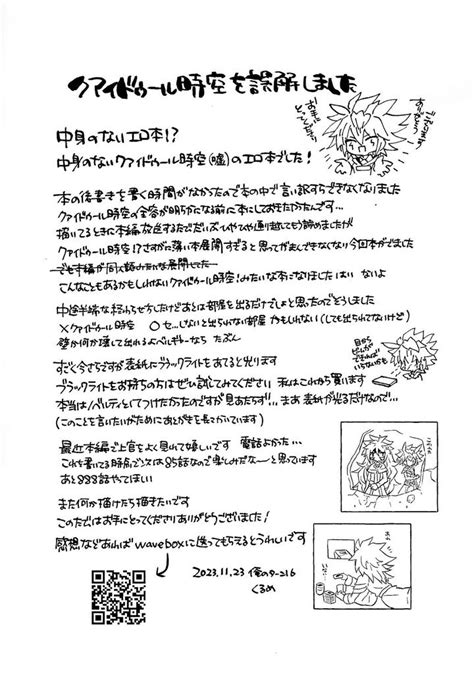 クアイドゥール時空を誤解しました
ありがとう
ございます
中身のないエロ本!?
中身のないクアイドゥール時空(嘘)のエロ本でした!
本の後書きを書く時間がなかったので本の中で言い訳すらできなくなりました
クアイドゥール時空の全容が明らかになる前に本にしておきたかったんです…
描いてるときに本編放送するたびだいぶ
クアイドゥール時空!?さすがに薄い本展開すぎると思ってがまんできなくなり今回本がでました
でも本編が同人誌みたいな展開してた
こんなこともあるかもしれないクアイドゥール時空!みたいな本になりました はい ないよ
中途半端な終わらせ方したけどあとは部屋を出るだけでしょと思ったのでどうしました
×クアイドゥール時空 ○セ…しないと出られない部屋 かもしれない(しても出られてないけど)
壁か何か壊して出れるよベルギーなら たぶん
すごく今さらですが表紙にブラックライトをあてると光ります
ブラックライトをお持ちの方はぜひ試してみてください 私はこれから買います
本当はノベルティとしてつけたかったのですが見あたらず… まあ表紙が光るだけなので…
(このことを言いたいがためにあとがきを長々かいています)
最近本編で上官をよく見れて嬉しいです 電話よかった…
これを書いてる時点で次は85話なので楽しみだなーと思っています
あと888話やってほしい
また何か描けたら描きたいです
このたびはお手にとってくださりありがとうございました!
感想などあればwaveboxに送ってもらえるとうれしいです
2023.11.23 俺のターン16
くるめ